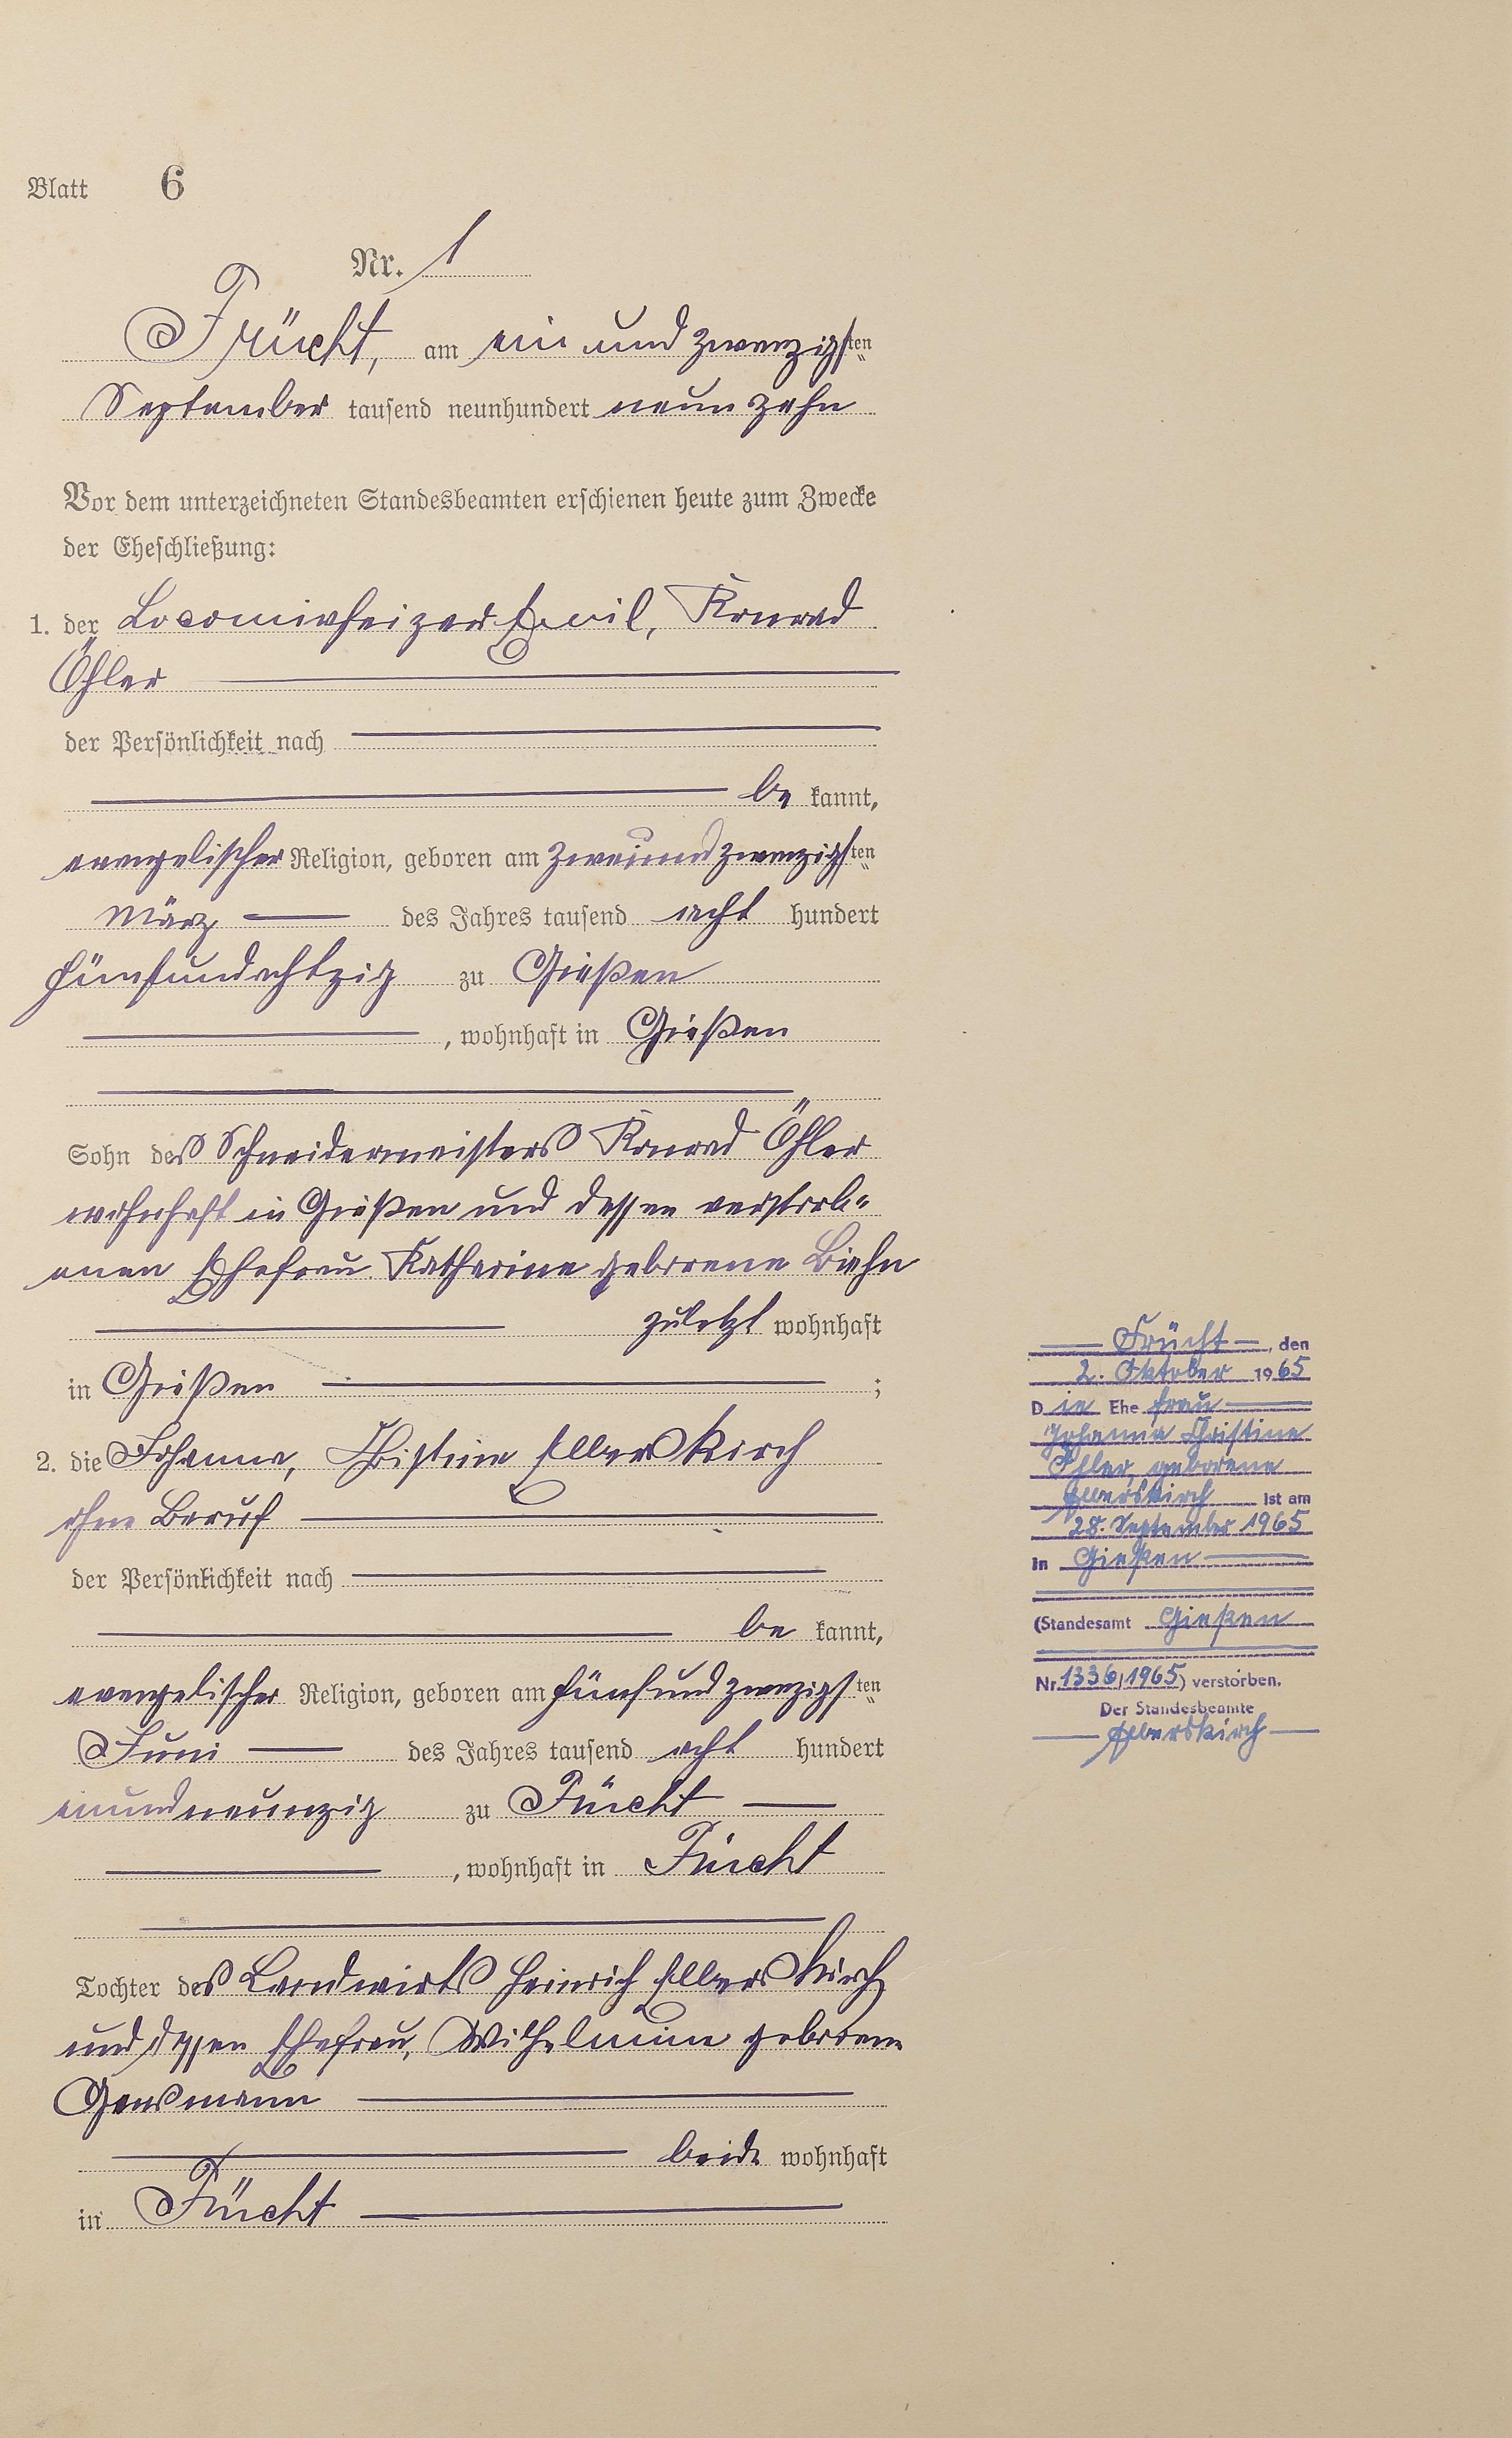 Blatt 6
Nr. 1
Frücht, am ein und zwanzigsten
September tausend neunhundert neunzehn
Vor dem unterzeichneten Standesbeamten erschienen heute zum Zwecke
der Eheschließung:
1. der Emil, Konrad
Öhler
der Persönlichkeit nach
be kannt,
evangelischer Religion, geboren am zweiundzwanzigsten
März des Jahres tausend acht hundert
fünfundachtzig zu Gießen
, wohnhaft in Gießen
Sohn des Schneidermeisters Konrad Öhler
wohnhaft in Gießen und dessen verstorb-
enen Ehefrau Katharine geborene Biehn
zuletzt wohnhaft
in Gießen ;
2. die Johanna, Christine Ellerskirch
ohne Beruf
der Persönlichkeit nach
be kannt,
evangelischer Religion, geboren am fünfundzwanzigsten
Juni des Jahres tausend acht hundert
einundneunzig zu Frücht
, wohnhaft in Frücht
Tochter des Landwirts Heinrich Ellerskirch
und dessen Ehefrau, Wilhelmine geborene
beide wohnhaft
in Frücht
Frücht, den
2. Oktober 1965
Die Ehefrau
Johanna Christine
Öhler, geborene
Ellerskirch ist am
28. September 1965
in Gießen
(Standesamt Gießen
Nr. 1336/1965) verstorben.
Der Standesbeamte
Ellerskirch